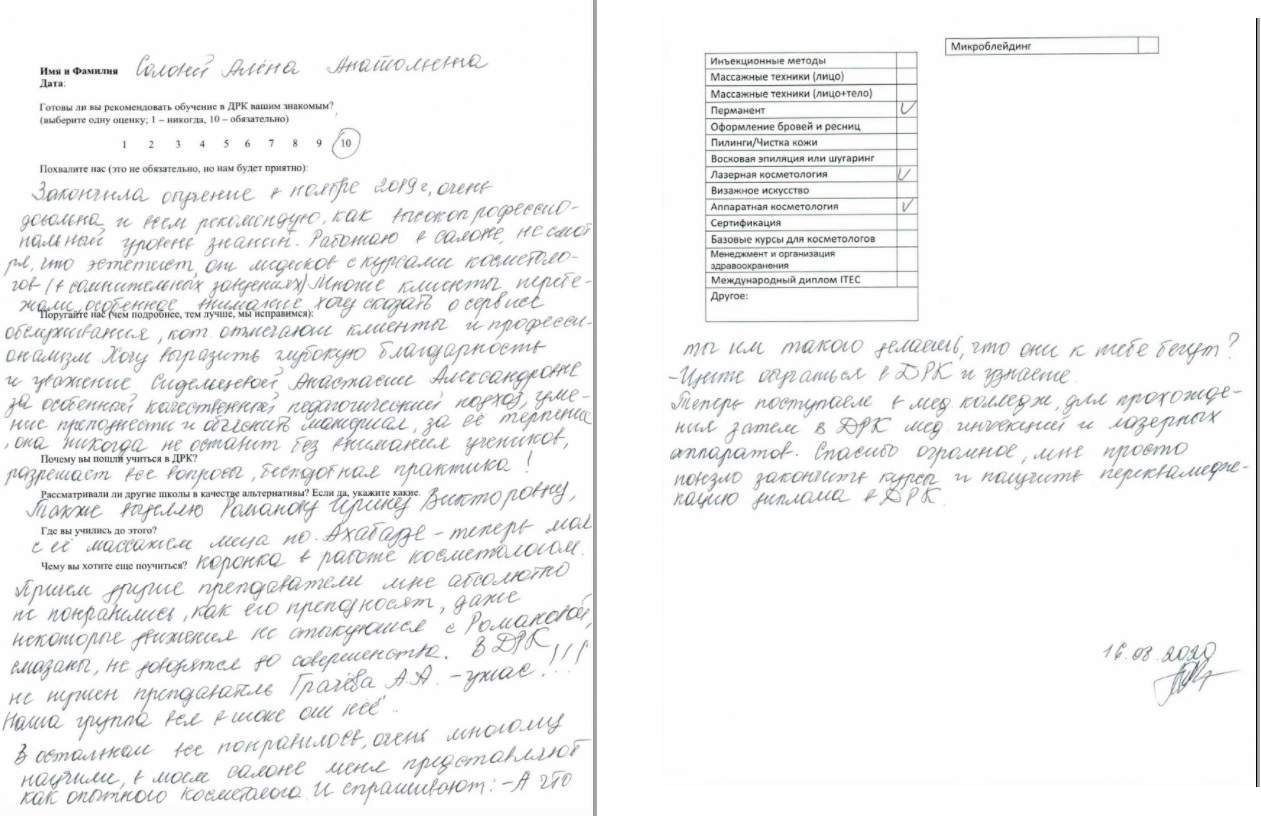 Имя и Фамилия Солоней Алёна Анатольевна
Дата:
Готовы ли вы рекомендовать обучение в ДРК вашим знакомым?
(выберите одну оценку; 1 – никогда, 10 – обязательно)
1 2 3 4 5 6 7 8 9 10
Похвалите нас (это не обязательно, но нам будет приятно):
Закончила обучение в ноябре 2019 г, очень
довольна и всем рекомендую, как высокопрофессио-
нальный уровень знаний. Работаю в салоне, не смот
ря, что эстетист, от медиков с курсами косметоло-
гов (в сомнительных заведениях) Многие клиенты перебе-
жали, особенное внимание хочу сказать о сервисе
Поругайте нас (чем подробнее, тем лучше, мы исправимся):
обслуживания, кот отмечают клиенты и професси-
онализм Хочу выразить глубокую благодарность
и уважение Анастасии Александровне
за особенный качественный педагогический подход, уме-
ние преподнести и объяснить материал, за её терпение
, она никогда не оставит без внимания учеников,
Почему вы пошли учиться в ДРК?
разрешает все вопросы, бесподобная практика!
Рассматривали ли другие школы в качестве альтернативы? Если да, укажите какие.
Также выделяю Романову Ирину Викторовну,
Где вы учились до этого?
с её массажем лица по Ахабадзе - теперь моя
Чему вы хотите еще поучиться? коронка в работе косметологом.
Причем другие преподаватели мне абсолютно
не понравились, как его преподносят, даже
некоторые движения не стыкующиеся с Романовой,
смазаны, не доводятся до совершенства. В ДРК
не нужен преподаватель Грачёва А.А. - ужас!!!
Наша группа вся в шоке от неё.
В остальном все понравилось, очень многому
научили, в моем салоне меня представляют
как опытного косметолога и спрашивают: - А что
Микроблейдинг
Инъекционные методы
Массажные техники (лицо)
Массажные техники (лицо+тело)
Перманент
Оформление бровей и ресниц
Пилинги/Чистка кожи
Восковая эпиляция или шугаринг
Лазерная косметология
Визажное искусство
Аппаратная косметология
Сертификация
Базовые курсы для косметологов
Менеджмент и организация
здравоохранения
Международный диплом ITEC
Другое:
ты им такого делаешь, что они к тебе бегут?
- Идите обучаться в ДРК и узнаете.
Теперь поступаем в мед колледж, для прохожде-
ния затем в ДРК мед инъекций и лазерных
аппаратов. Спасибо огромное, мне просто
повезло закончить курсы и получить переквалифи-
кацию диплома в ДРК.
16.08.2020